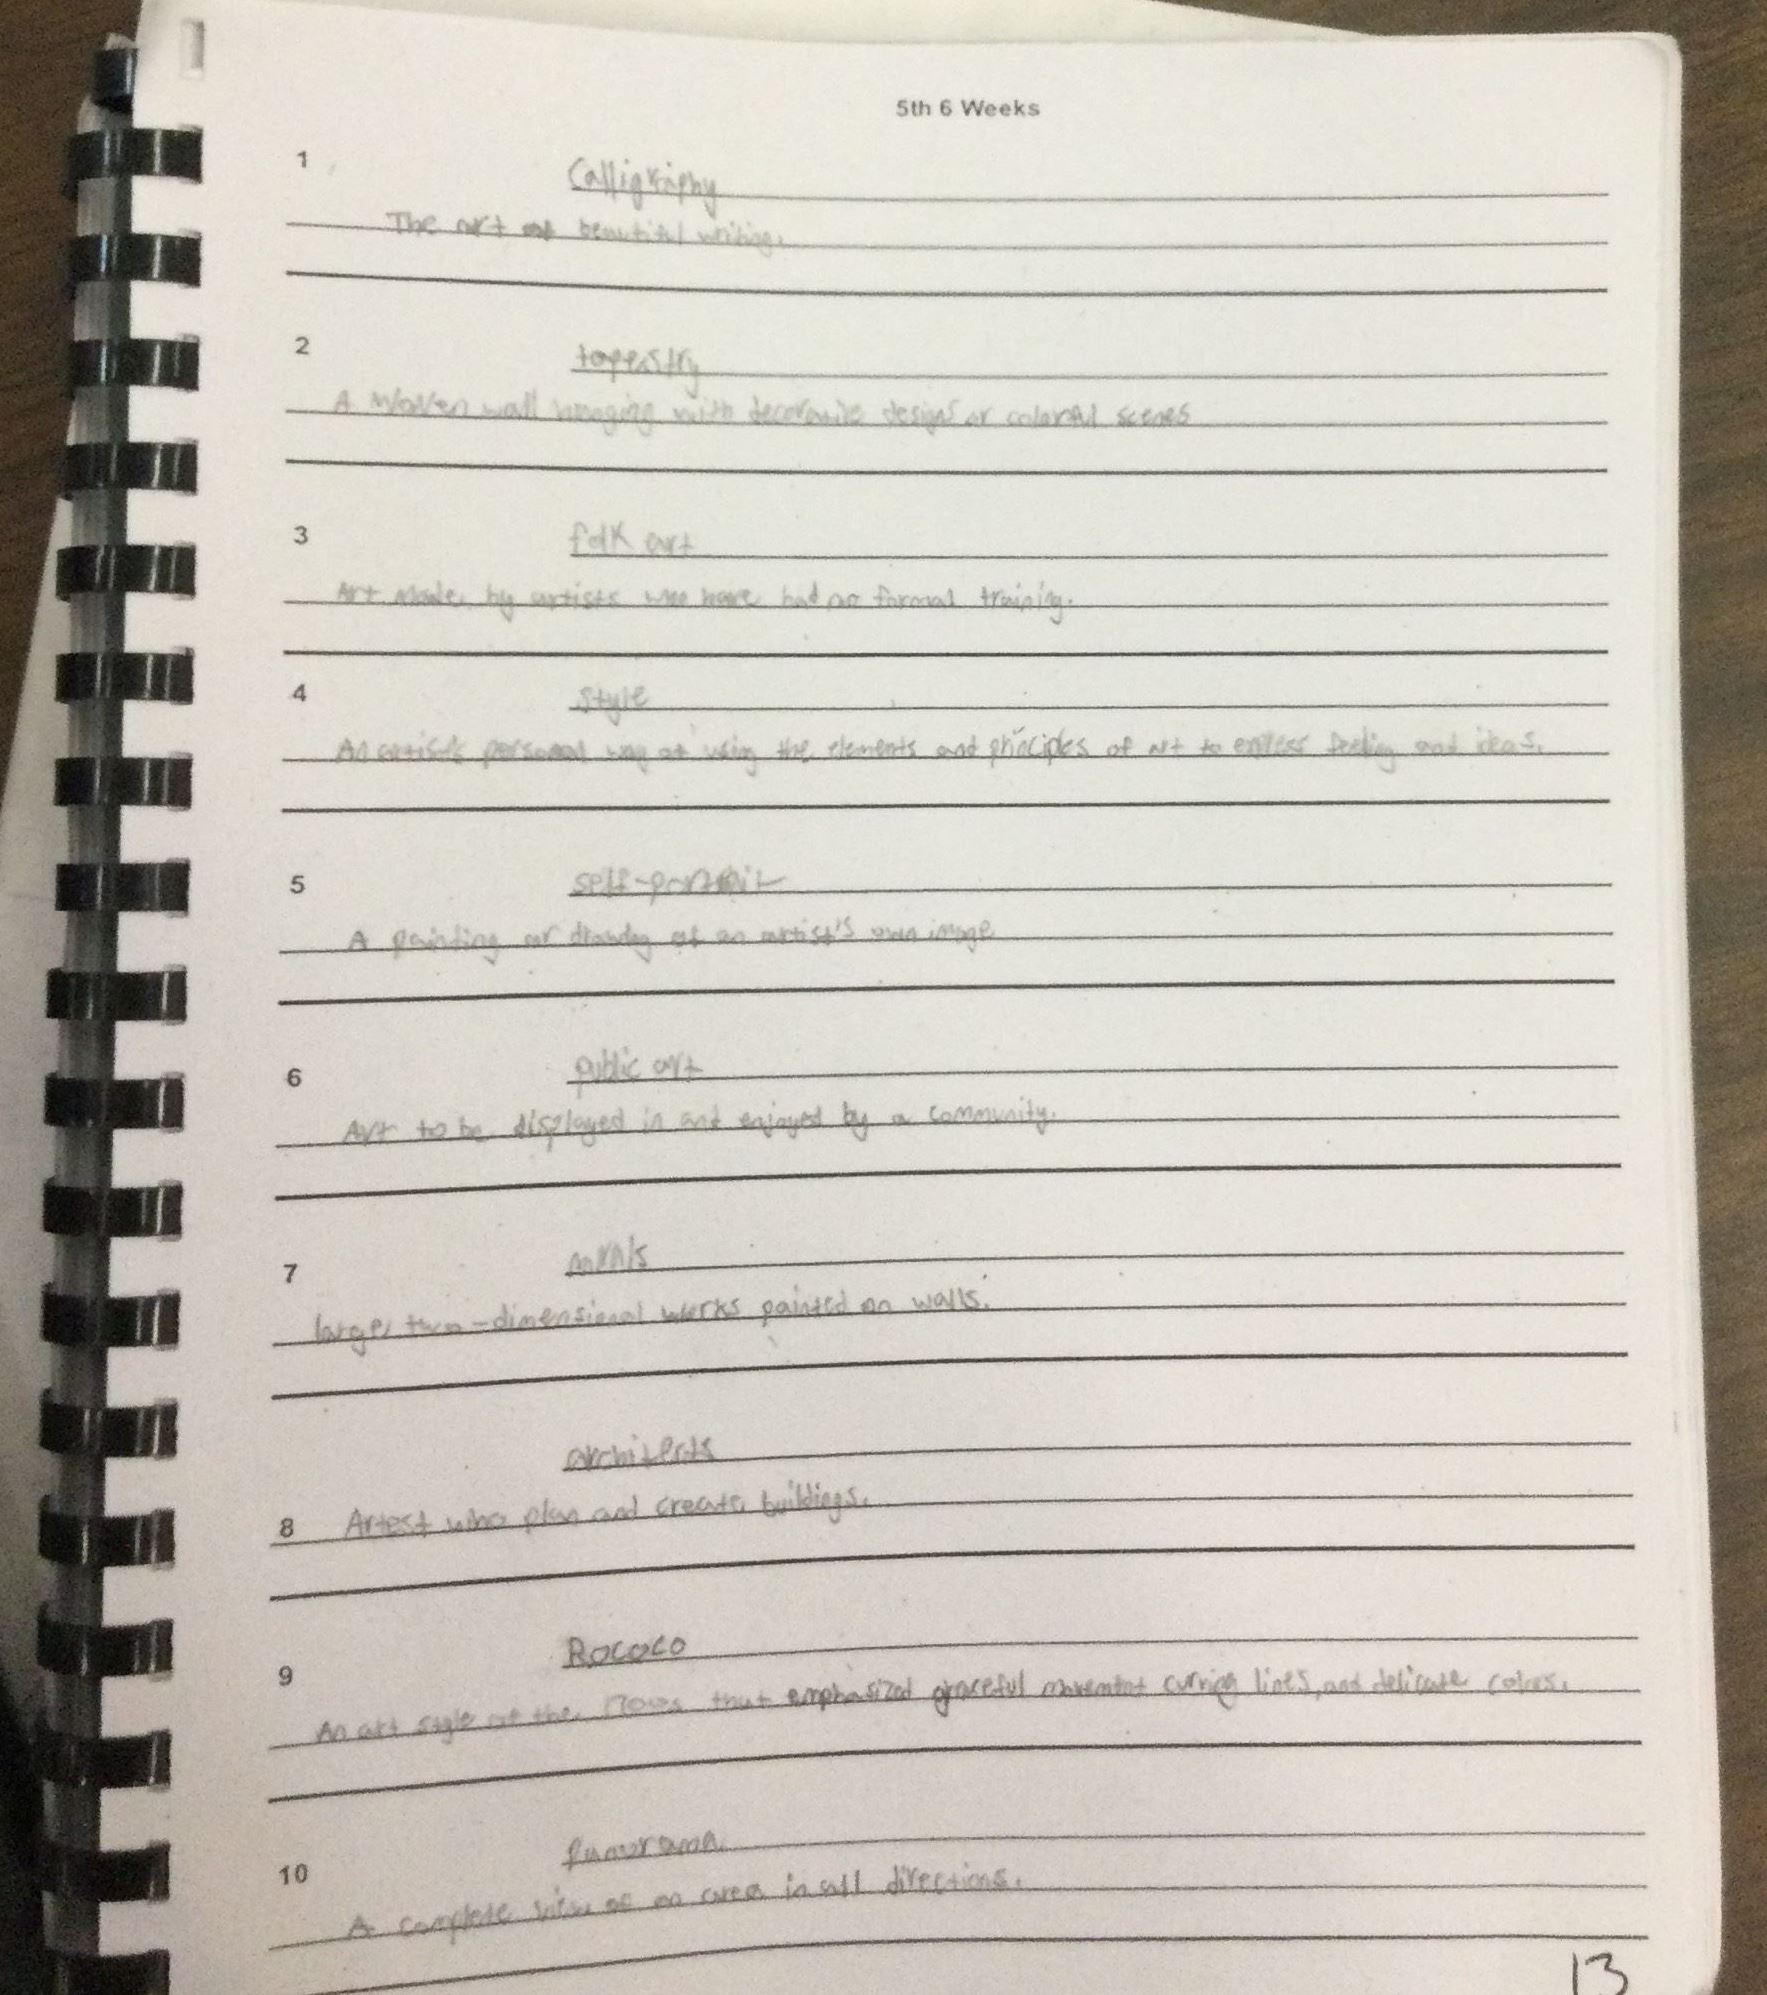 5th 6 Weeks
1
Calligraphy
The art of beautiful writing.
2
tapestry
A woven wall hanging with decorative designs or colorful scenes
3
folk art
Art made by artists who have had no formal training.
4
style
An artist's personal way of using the elements and principles of art to express feeling and ideas.
5
self-portrait
A painting or drawing of an artist's own image
6
public art
Art to be displayed in and enjoyed by a community.
7
murals
large two-dimensional works painted on walls.
architects
8 Artest who plan and create buildings.
9
Rococo
An art style of the 1700s that emphasized graceful movement curving lines, and delicate colors.
10
Panorama
A complete view of an area in all directions.
13